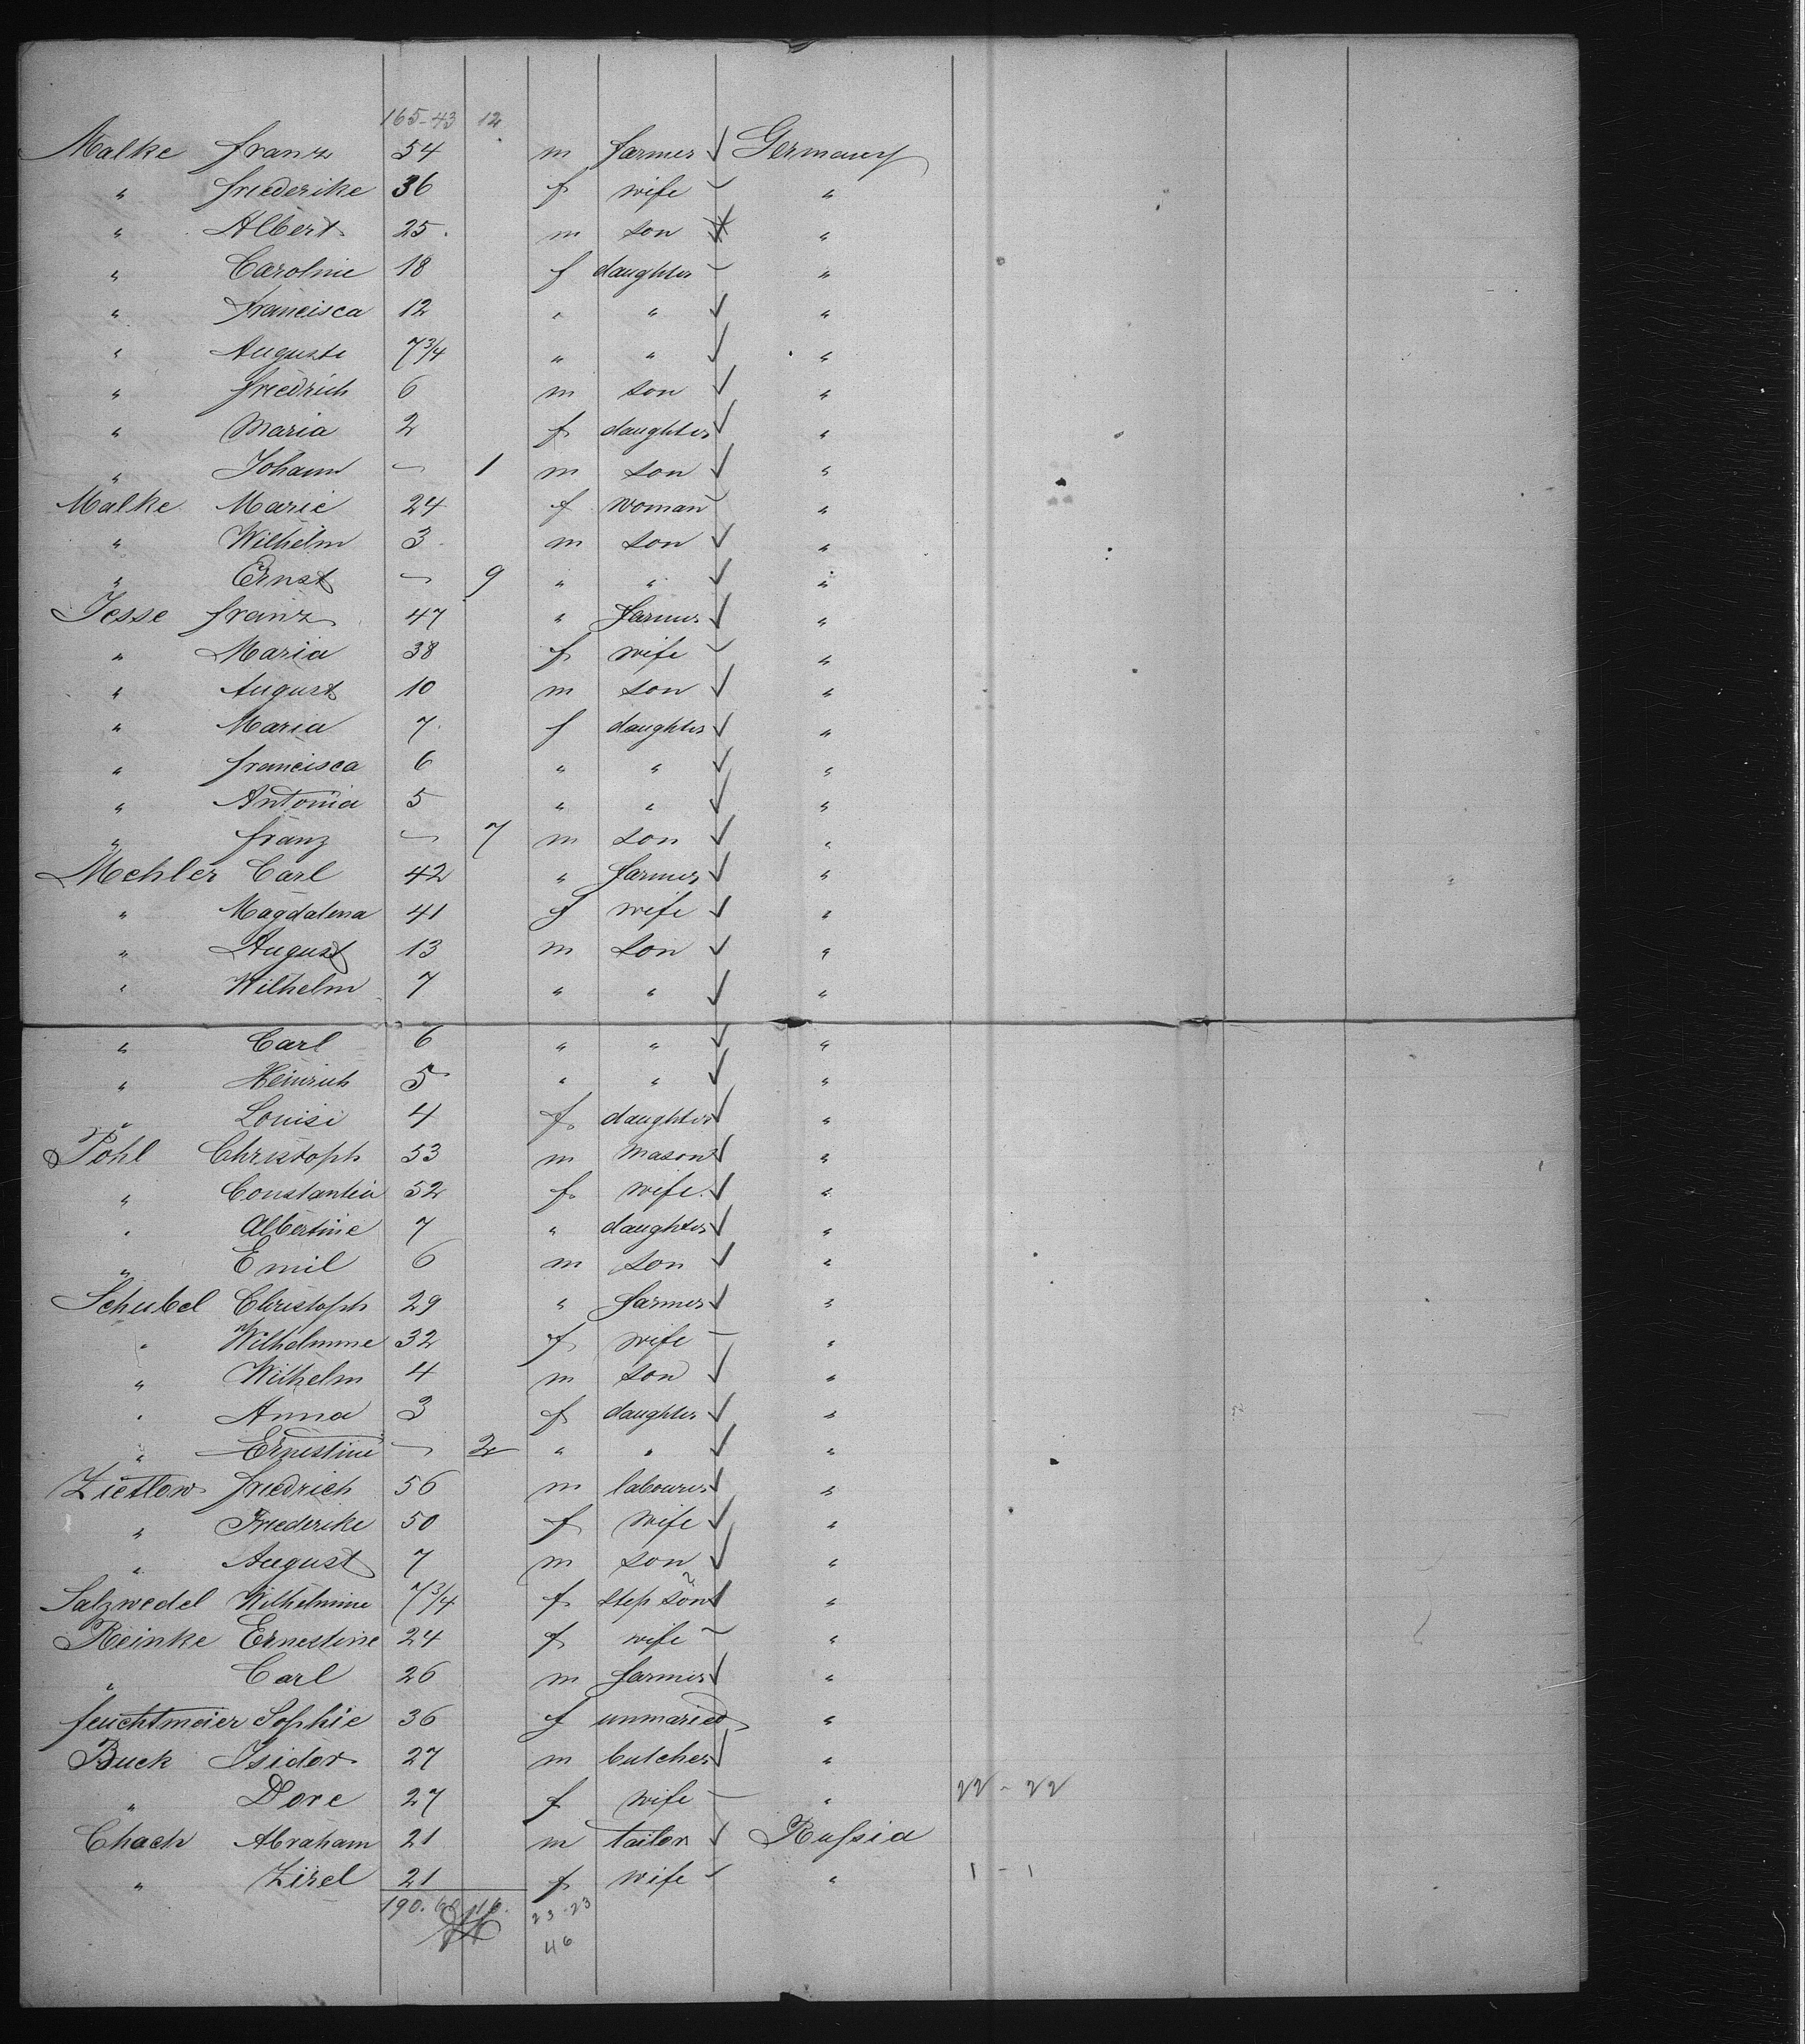 165-43 12
Malke Franz 54 m farmer Germany
" Friederike 36 f wife "
" Albert 25 m son "
" Caroline 18 f daughter "
" Francisca 12 " " "
" Auguste 7 3/4 " " "
" Friedrich 6 m son "
" Maria 2 f daughter "
" Johann — 1 m son "
Malke Marie 24 f woman "
" Wilhelm 3 m son "
" Ernst — 9 " " "
Jesse Franz 47 " farmer "
" Maria 38 f wife "
" August 10 m son "
" Maria 7 f daughter "
" Francisca 6 " " "
" Antonia 5 " " "
" Franz — 7 m son "
Mehler Carl 42 " farmer "
" Magdalena 41 f wife "
" August 13 m son "
" Wilhelm 7 " " "
" Carl 6 " " "
" Heinrich 5 " " "
" Louise 4 f daughter "
Pohl Christoph 53 m mason "
" Constantia 52 f wife "
" Albertine 7 " daughter "
" Emil 6 m son "
Schubel Christoph 29 " farmer "
" Wilhelmine 32 f wife "
" Wilhelm 4 m son "
" Anna 3 f daughter "
" Ernestine — 2 " " "
Zietlow Friedrich 56 m labourer "
" Friederike 50 f wife "
" August 7 m son "
Salzwedel Wilhelmine 7 3/4 f step son "
Reinke Ernestine 24 f wife "
" Carl 26 m farmer "
Feuchtmeier Sophie 36 f unmaried "
Buck Isidor 27 m butcher "
" Dore 27 f wife " 22 - 22
Chach Abraham 21 m tailor Russia
" Zirel 21 f wife " 1 - 1
190. 23-23
46